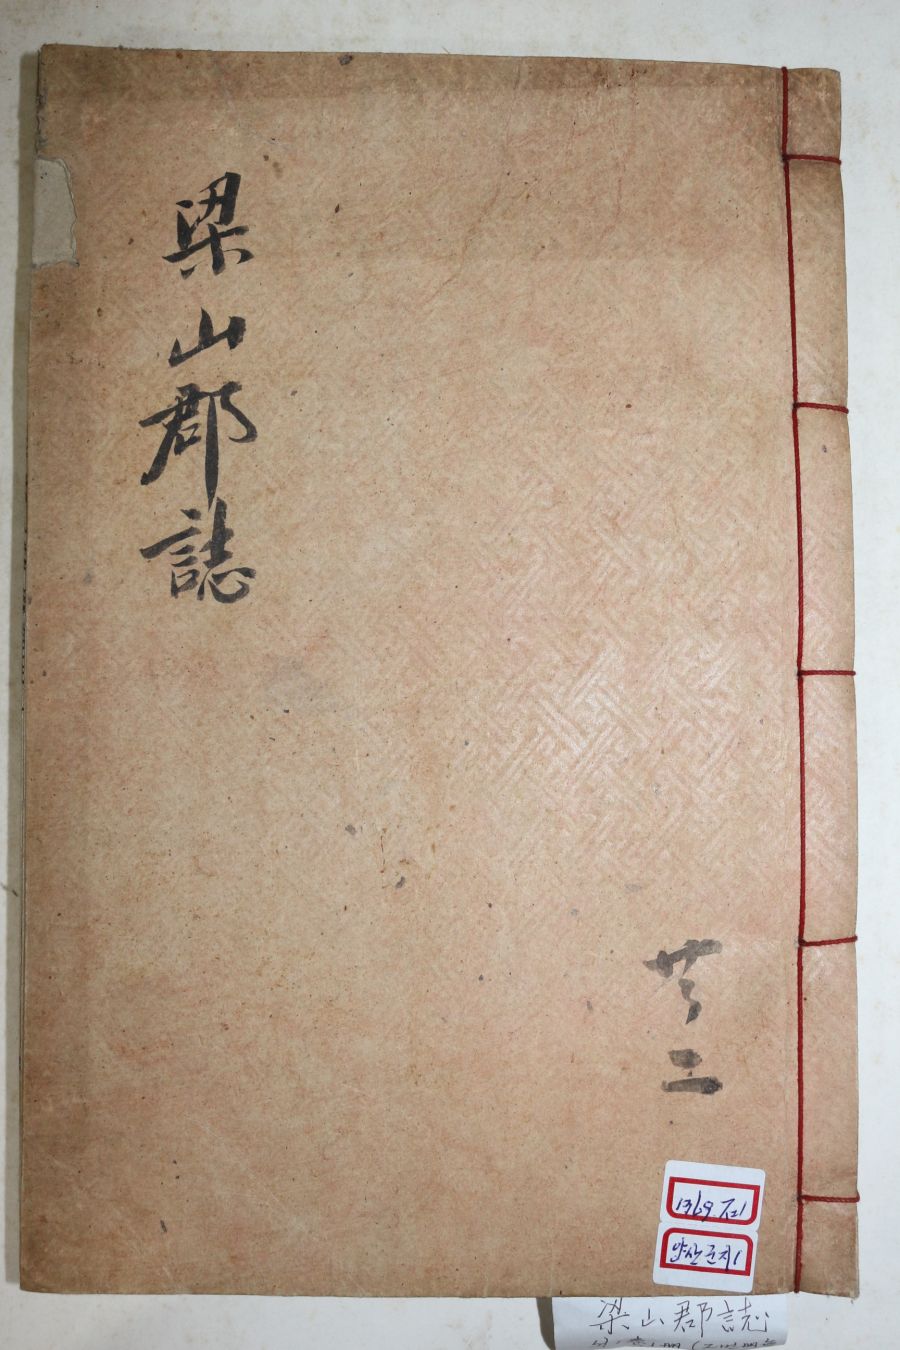 梁山郡誌
共二
1369
양산군지1
梁山郡誌